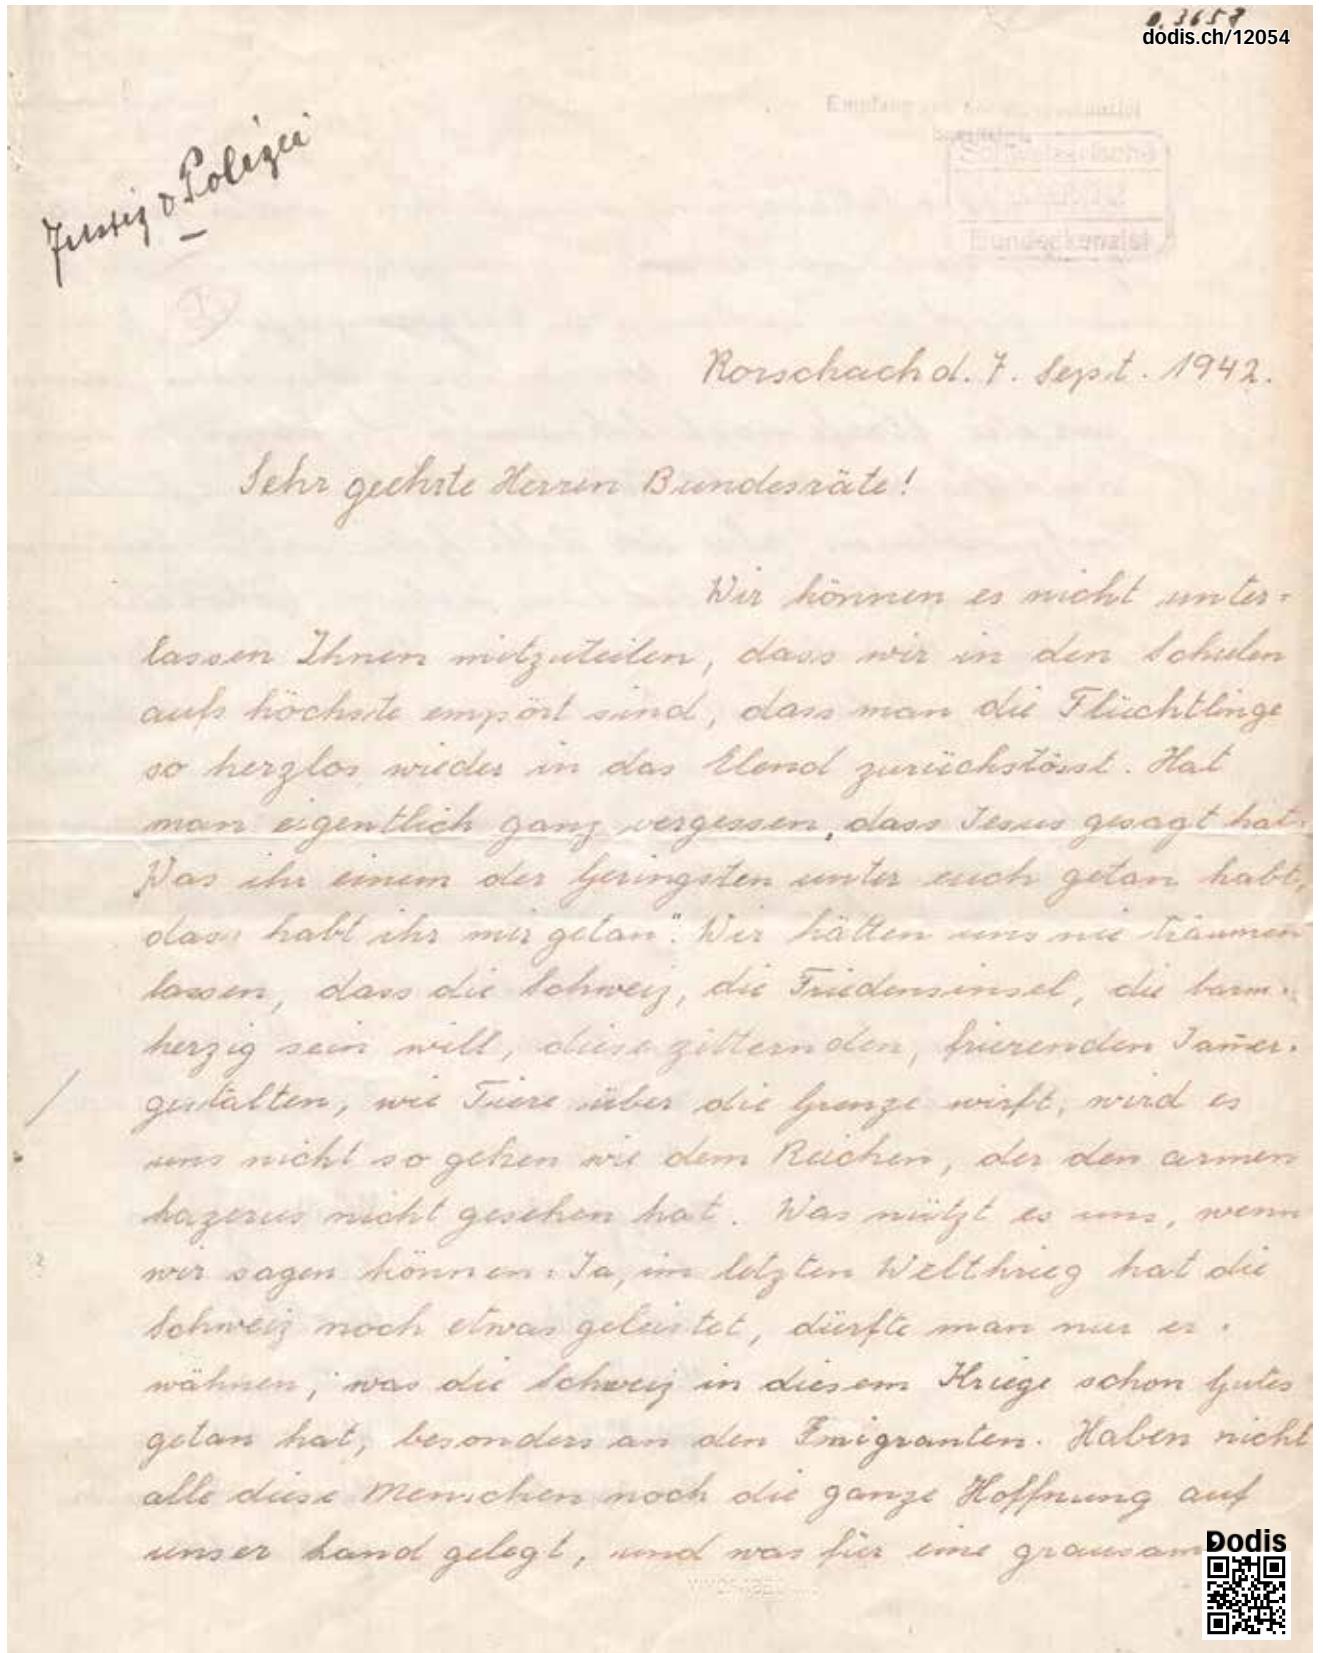 0.3658
dodis.ch/12054
Justiz & Polizei
Schweizerische
Bundeskanzlei
Rorschach d. 7. Sept. 1942.
Sehr geehrte Herren Bundesräte!
Wir können es nicht unter=
lassen Ihnen mitzuteilen, dass wir in den Schulen
aufs höchste empört sind, dass man die Flüchtlinge
so herzlos wieder in das Elend zurückstösst. Hat
man eigentlich ganz vergessen, dass Jesus gesagt hat:
„Was ihr einem der Geringsten unter euch getan habt,
das habt ihr mir getan". Wir hätten uns nie träumen
lassen, dass die Schweiz, die Friedensinsel, die barm-
herzig sein will, diese zitternden, frierenden Jam̄er-
gestalten, wie Tiere über die Grenze wirft, wird es
uns nicht so gehen wie dem Reichen, der den armen
Lazerus nicht gesehen hat. Was nützt es uns, wenn
wir sagen können: Ja, im letzten Weltkrieg hat die
Schweiz noch etwas geleistet, dürfte man nur er-
wähnen, was die Schweiz in diesem Kriege schon Gutes
getan hat, besonders an den Emigranten. Haben nicht
alle diese Menschen noch die ganze Hoffnung auf
unser Land gelegt, und was für eine grausam
Dodis